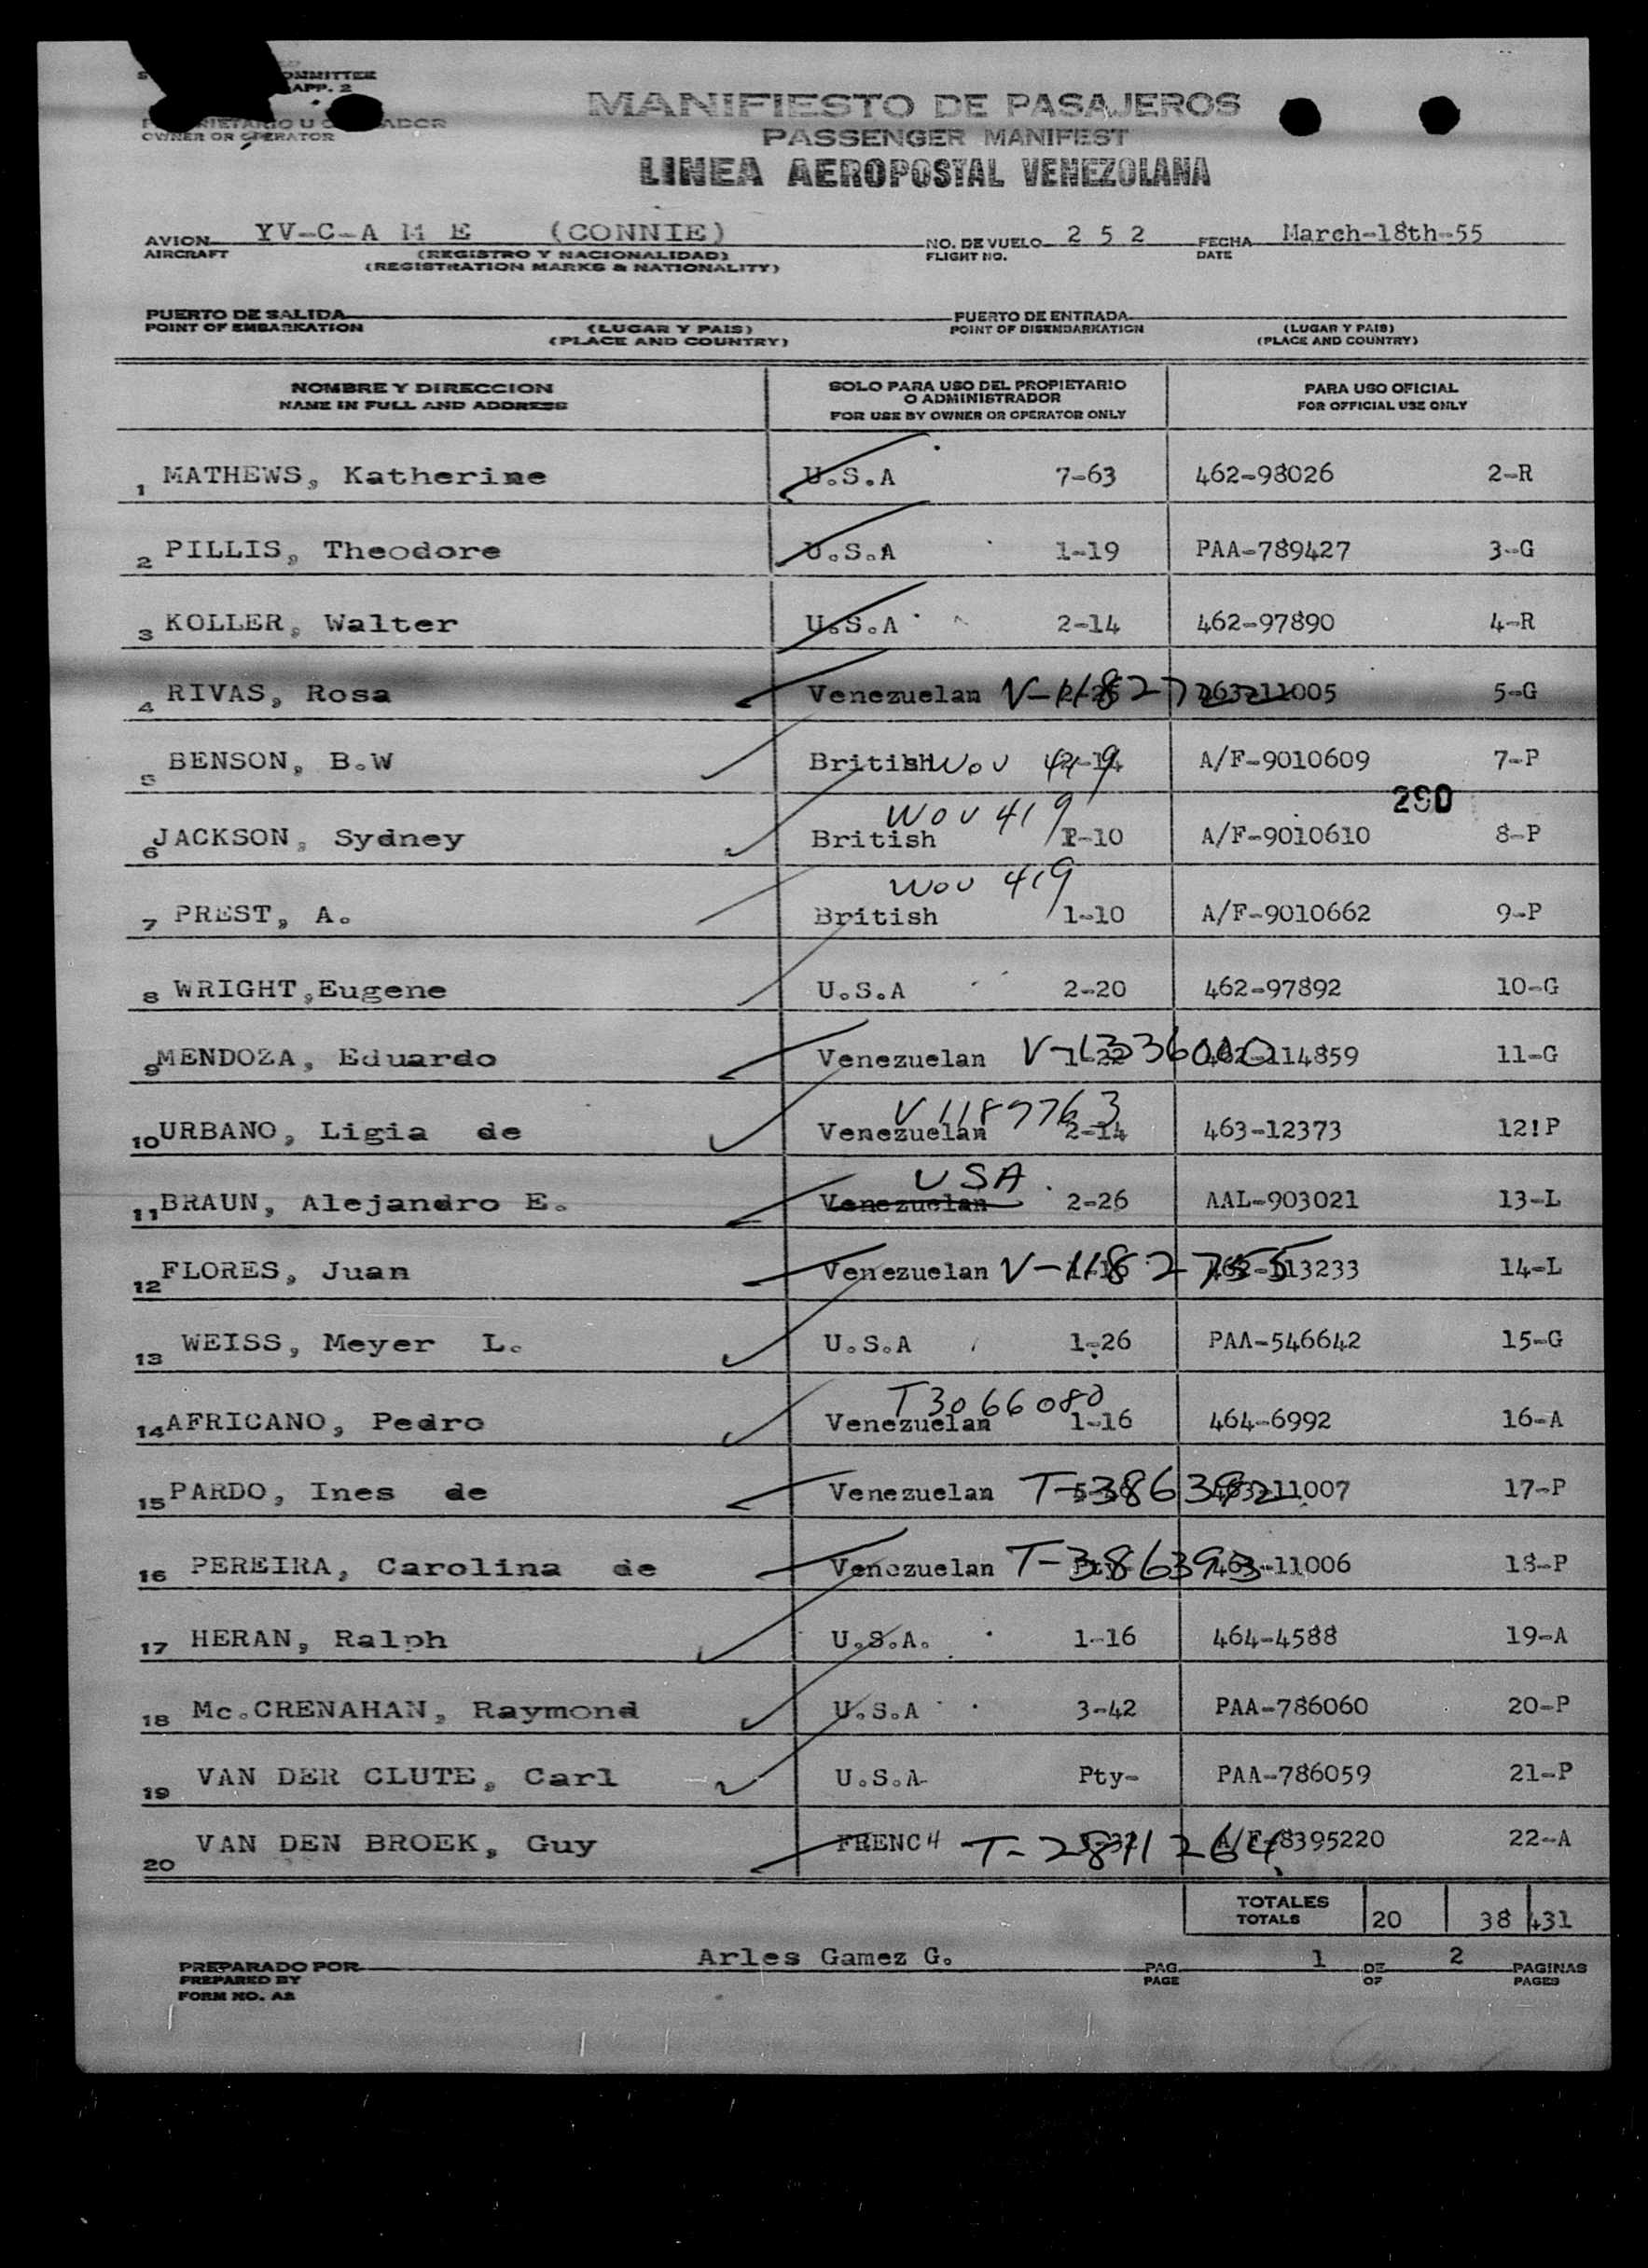 OMMITTEE
APP. 2
MANIFIESTO DE PASAJEROS
OWNER OR OPERATOR
PASSENGER MANIFEST
LINEA AEROPOSTAL VENEZOLANA
AVION YV-C-A M E (CONNIE) NO. DE VUELO 2 5 2 FECHA March-18th-55
AIRCRAFT (REGISTRO Y NACIONALIDAD) FLIGHT NO. DATE
(REGISTRATION MARKS & NATIONALITY)
PUERTO DE SALIDA PUERTO DE ENTRADA
POINT OF EMBARKATION (LUGAR Y PAIS) POINT OF DISEMBARKATION (LUGAR Y PAIS)
(PLACE AND COUNTRY) (PLACE AND COUNTRY)
NOMBRE Y DIRECCION SOLO PARA USO DEL PROPIETARIO PARA USO OFICIAL
O ADMINISTRADOR
NAME IN FULL AND ADDRESS FOR USE BY OWNER OR OPERATOR ONLY FOR OFFICIAL USE ONLY
1 MATHEWS, Katherine U.S.A 7-63 462-98026 2-R
2 PILLIS, Theodore U.S.A 1-19 PAA-789427 3-G
3 KOLLER, Walter U.S.A 2-14 462-97890 4-R
4 RIVAS, Rosa Venezuelan 463-11005 5-G
5 BENSON, B.W British WOV 419 A/F-9010609 7-P
290
WOV 419
6 JACKSON, Sydney British 1-10 A/F-9010610 8-P
WOV 419
7 PREST, A. British 1-10 A/F-9010662 9-P
8 WRIGHT,Eugene U.S.A 2-20 462-97892 10-G
9 MENDOZA, Eduardo Venezuelan V-1336000 1-22 462-114859 11-G
V1189763
10 URBANO, Ligia de Venezuelan 2-14 463-12373 12!P
USA
11 BRAUN, Alejandro E. Venezuelan 2-26 AAL-903021 13-L
12 FLORES, Juan Venezuelan V-1182755 1-16 462-113233 14-L
13 WEISS, Meyer L. U.S.A 1-26 PAA-546642 15-G
T3066080
14 AFRICANO, Pedro Venezuelan 1-16 464-6992 16-A
15 PARDO, Ines de Venezuelan T-386392 463-11007 17-P
16 PEREIRA, Carolina de Venezuelan T-386393 463-11006 18-P
17 HERAN, Ralph U.S.A. 1-16 464-4588 19-A
18 Mc.CRENAHAN, Raymond U.S.A 3-42 PAA-786060 20-P
19 VAN DER CLUTE, Carl U.S.A- Pty- PAA-786059 21-P
20 VAN DEN BROEK, Guy FRENCH T-2871264 A/F-8395220 22-A
TOTALES
TOTALS 20 38 431
PREPARADO POR Arles Gamez G. PAG. 1 DE 2 PAGINAS
PREPARED BY PAGE OF PAGES
FORM NO. A2